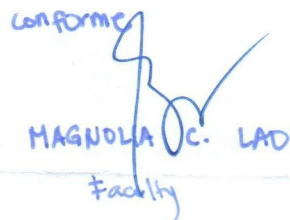 Conforme
MAGNOLIA C. LAO
Faculty